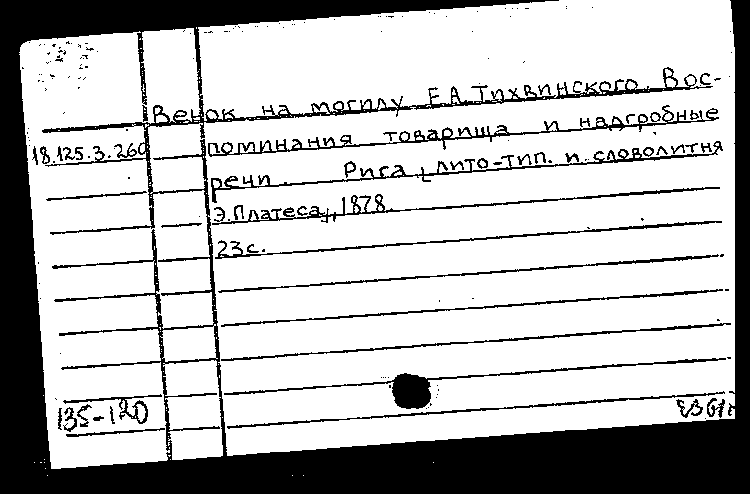 Венок на могилу Е.А.Тихвинского. Вос-
18.125.3.260 поминания товарища и надгробные
речи. Рига, лито-тип. и словолитня
Э.Платеса, 1878.
23с.
135-120